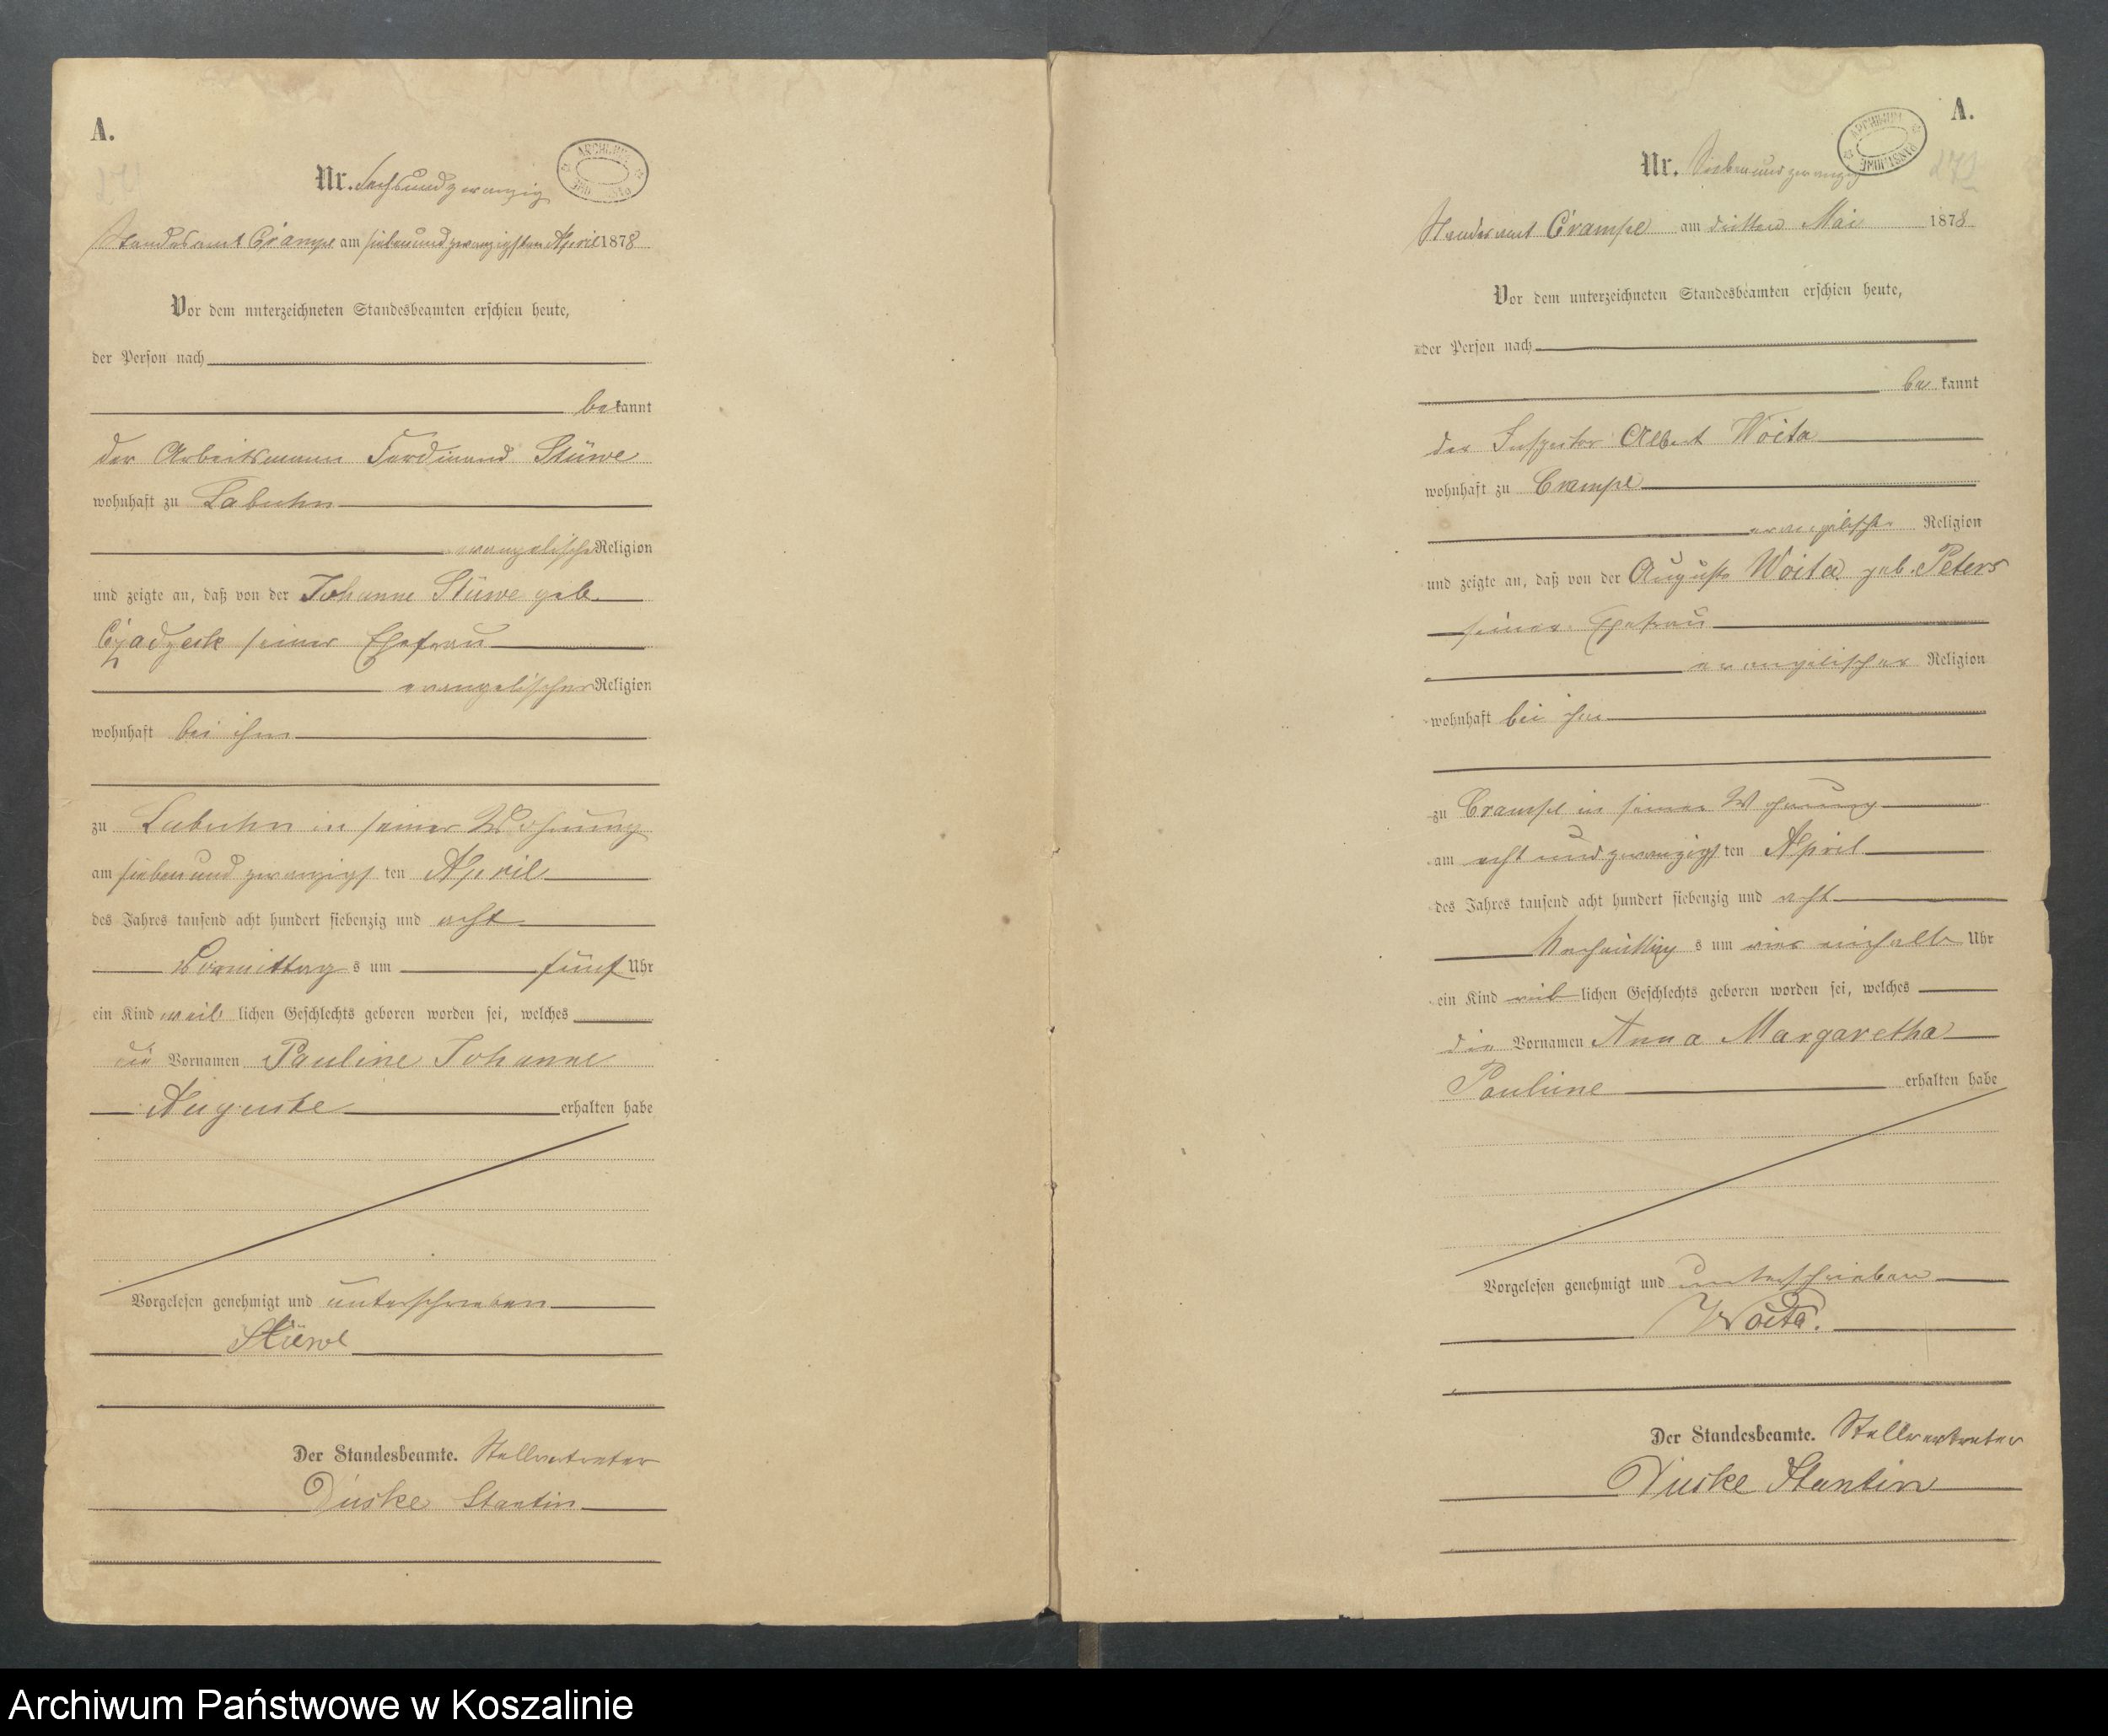 A.
Nr. Sechsundzwanzig
ARCHIWUM PAŃSTWOWE
Standesamt Crampe am siebenundzwanzigsten April 1878
Vor dem unterzeichneten Standesbeamten erschien heute,
der Person nach
bekannt
der Arbeitsmann Ferdinand Stüwe
wohnhaft zu Labuhn
evangelischer Religion
und zeigte an, daß von der Johanne Stüwe geb.
seiner Ehefrau
evangelischer Religion
wohnhaft bei ihm
zu Labuhn in seiner Wohnung
am siebenundzwanzigsten April
des Jahres tausend acht hundert siebenzig und acht
Vormittags um fünf Uhr
ein Kind weiblichen Geschlechts geboren worden sei, welches
die Vornamen Pauline Johanne
Auguste erhalten habe
Vorgelesen genehmigt und unterschrieben
Stüwe
Der Standesbeamte. Stellvertreter
Duske Stantin
A.
Nr. Siebenundzwanzig
ARCHIWUM PAŃSTWOWE
Standesamt Crampe am dritten Mai 1878
Vor dem unterzeichneten Standesbeamten erschien heute,
der Person nach
bekannt
der Inspector Albert Woita
wohnhaft zu Crampe
evangelischer Religion
und zeigte an, daß von der Auguste Woita geb. Peters
seiner Ehefrau
evangelischer Religion
wohnhaft bei ihm
zu Crampe in seiner Wohnung
am acht und zwanzigsten April
des Jahres tausend acht hundert siebenzig und acht
Nachmittags um vier einhalb Uhr
ein Kind weiblichen Geschlechts geboren worden sei, welches
die Vornamen Anna Margaretha
Pauline erhalten habe
Vorgelesen genehmigt und unterschrieben
Woita.
Der Standesbeamte. Stellvertreter
Duske Stantin
Archiwum Państwowe w Koszalinie